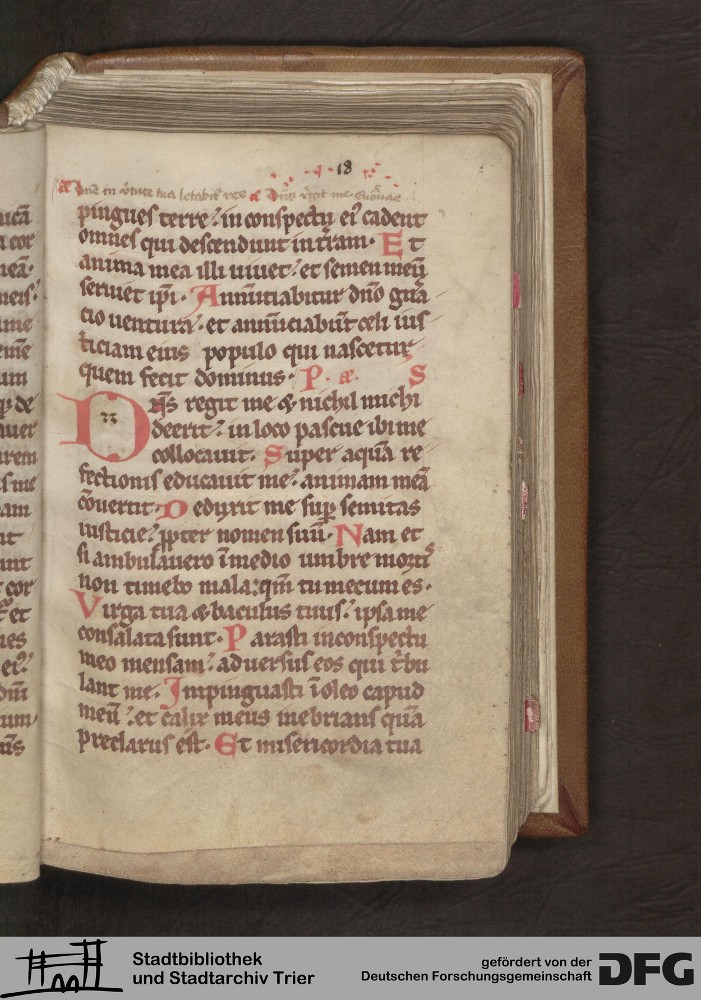 18
Dn̄e in v̄tute tua letabit᷑ rex Dn̄s regit me Euouae
pingues terre: in conspectu ei᷒ cadent
omnes qui descendunt in tr̄am. Et
anima mea illi uiuet: et semen meū
seruiet ip̄i. Annūtiabitur dn̄o gn̄a
tio uentura: et annūciabūt celi ius
ticiam eius populo qui nascetur
quem fecit dominus. P. S
Dn̄s regit me & nichil michi
deerit: in loco pascue ibi me
collocauit. Super aquā re
fectionis educauit me: animam meā
cōuertit. Deduxit me sup̱ semitas
iusticie: ꝓpter nomen suū. Nam et
si ambulauero ī medio umbre morti᷒
non timebo mala: qm̄ tu mecum es.
Virga tua & baculus tuus: ipsa me
consalata sunt. Parasti in conspectu
meo mensam: aduersus eos qui t᷑bu
lant me. Impinguasti ī oleo capud
meū: et calix meus inebrians quā
preclarus est. Et misericordia tua
Stadtbibliothek
und Stadtarchiv Trier
gefördert von der
Deutschen Forschungsgemeinschaft
DFG